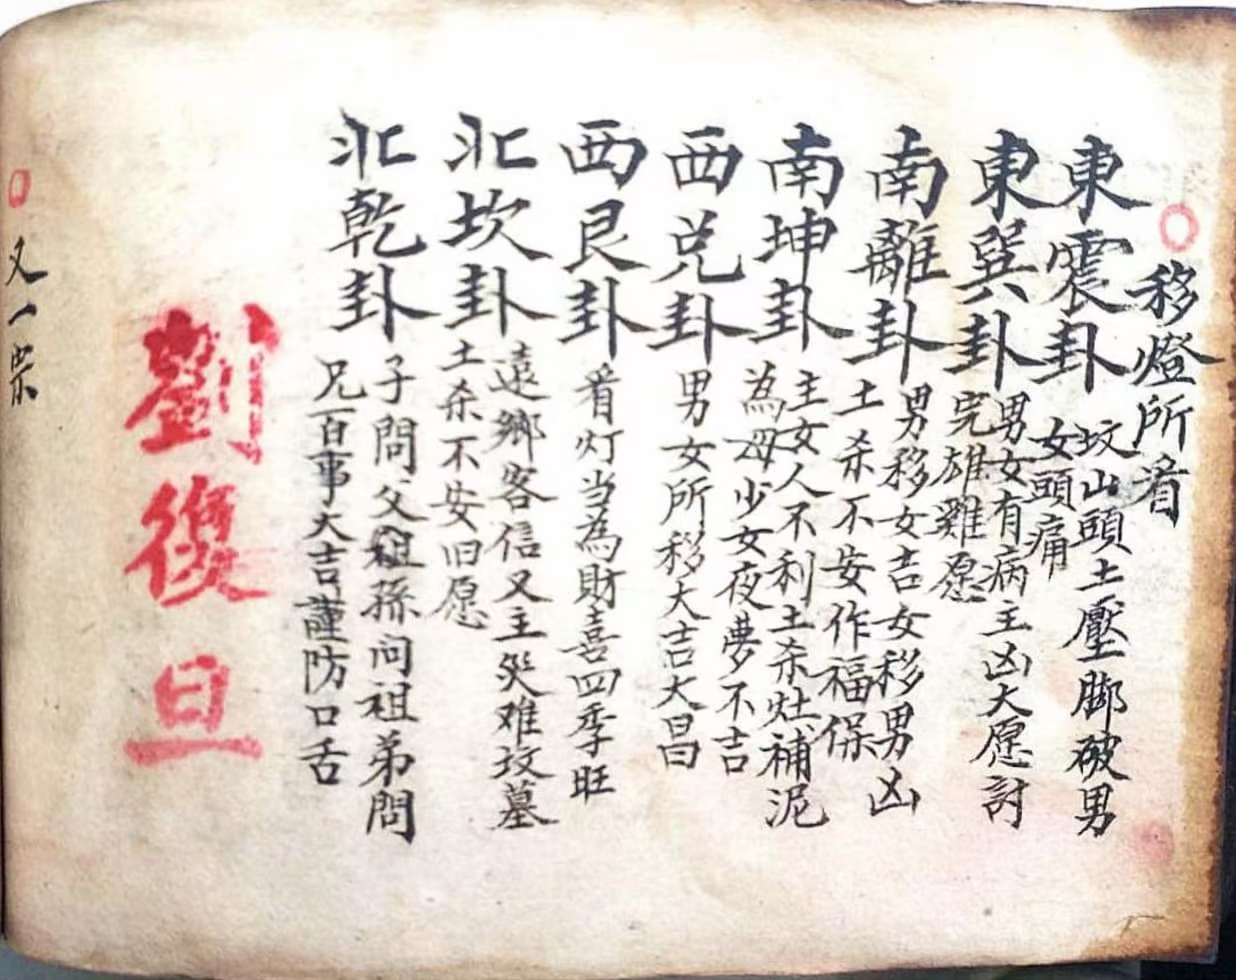 移燈所看
東震卦
坟山頭土壓脚破男
女頭痛
東巽卦
男女有病主凶大愿討
完雄雞愿
南離卦
男移女吉女移男凶
土杀不安作福保
南坤卦
主女人不利土杀灶補泥
為母少女夜夢不吉
西兌卦
男女所移大吉大昌
西艮卦
看灯当為財喜四季旺
北坎卦
遠鄉客信又主災难坟墓
土杀不安旧愿
北乾卦
子問父祖孫问祖弟問
兄百事大吉謹防口舌
劉復旦
又一宗